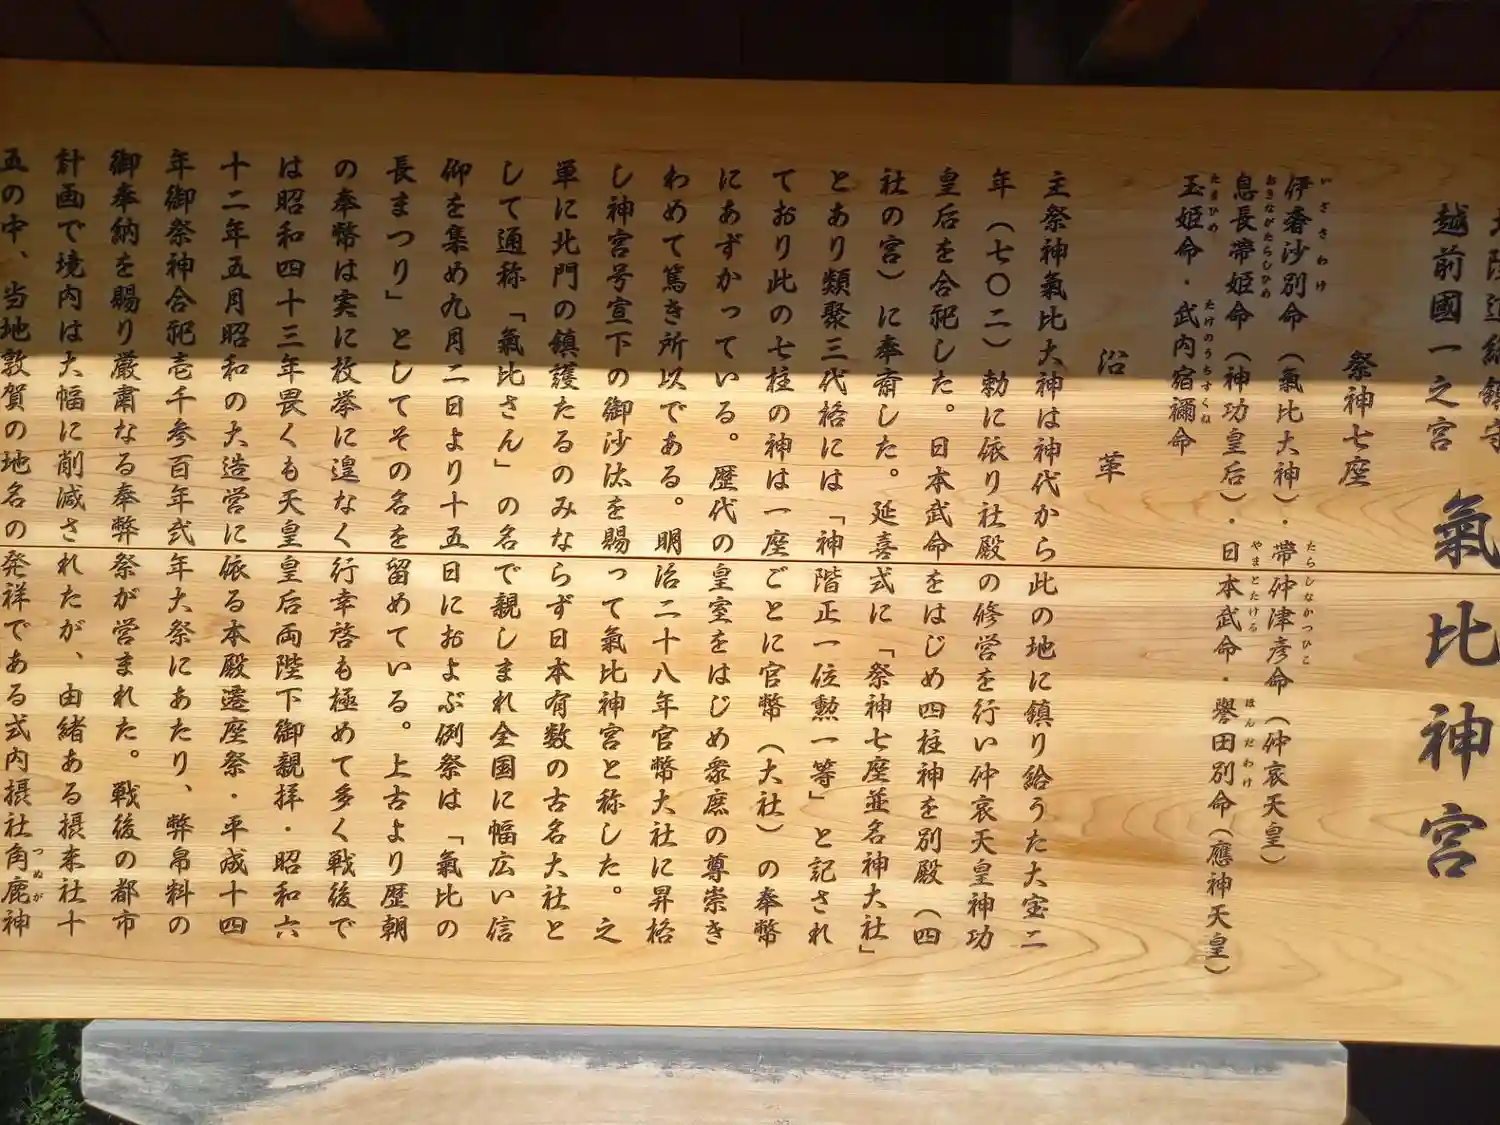 北陸道総鎮守
越前國一之宮
氣比神宮
祭神七座
伊奢沙別命（氣比大神）・帶仲津彦命（仲哀天皇）
いざさわけ
たらしなかつひこ
息長帶姫命（神功皇后）・日本武命・譽田別命（應神天皇）
おきながたらしひめ
やまとたける
ほんだわけ
玉姫命・武内宿禰命
たまひめ
たけのうちすくね
沿革
主祭神氣比大神は神代から此の地に鎮り給うた大宝二
年（七〇二）勅に依り社殿の修営を行い仲哀天皇神功
皇后を合祀した。日本武命をはじめ四柱神を別殿（四
社の宮）に奉斎した。延喜式に「祭神七座並名神大社」
とあり類聚三代格には「神階正一位勲一等」と記され
ており此の七柱の神は一座ごとに官幣（大社）の奉幣
にあずかっている。歴代の皇室をはじめ衆庶の尊崇き
わめて篤き所以である。明治二十八年官幣大社に昇格
し神宮号宣下の御沙汰を賜って氣比神宮と称した。之
単に北門の鎮護たるのみならず日本有数の古名大社と
して通称「氣比さん」の名で親しまれ全国に幅広い信
仰を集め九月二日より十五日におよぶ例祭は「氣比の
長まつり」としてその名を留めている。上古より歴朝
の奉幣は実に枚挙に遑なく行幸啓も極めて多く戦後で
は昭和四十三年畏くも天皇皇后両陛下御親拝・昭和六
十二年五月昭和の大造営に依る本殿遷座祭・平成十四
年御祭神合祀壱千参百年式年大祭にあたり、弊帛料の
御奉納を賜り厳粛なる奉弊祭が営まれた。戦後の都市
計画で境内は大幅に削減されたが、由緒ある摂末社十
五の中、当地敦賀の地名の発祥である式内摂社角鹿神
つぬが